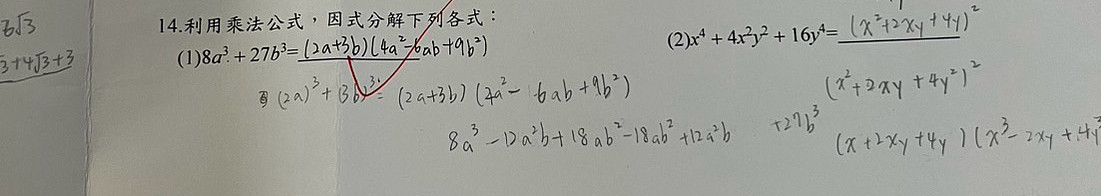 6√3
3+4√3+3
14.利用乘法公式，因式分解下列各式：
(1)8a³+27b³=(2a+3b)(4a²-6ab+9b²)
(2)x⁴+4x²y²+16y⁴=(x²+2xy+4y)²
(2a)³+(3b)³=(2a+3b)(4a²-6ab+9b²)
(x²+2xy+4y²)²
8a³-12a²b+18ab²-18ab²+12a²b+27b³
(x+2xy+4y)(x³-2xy+4y³